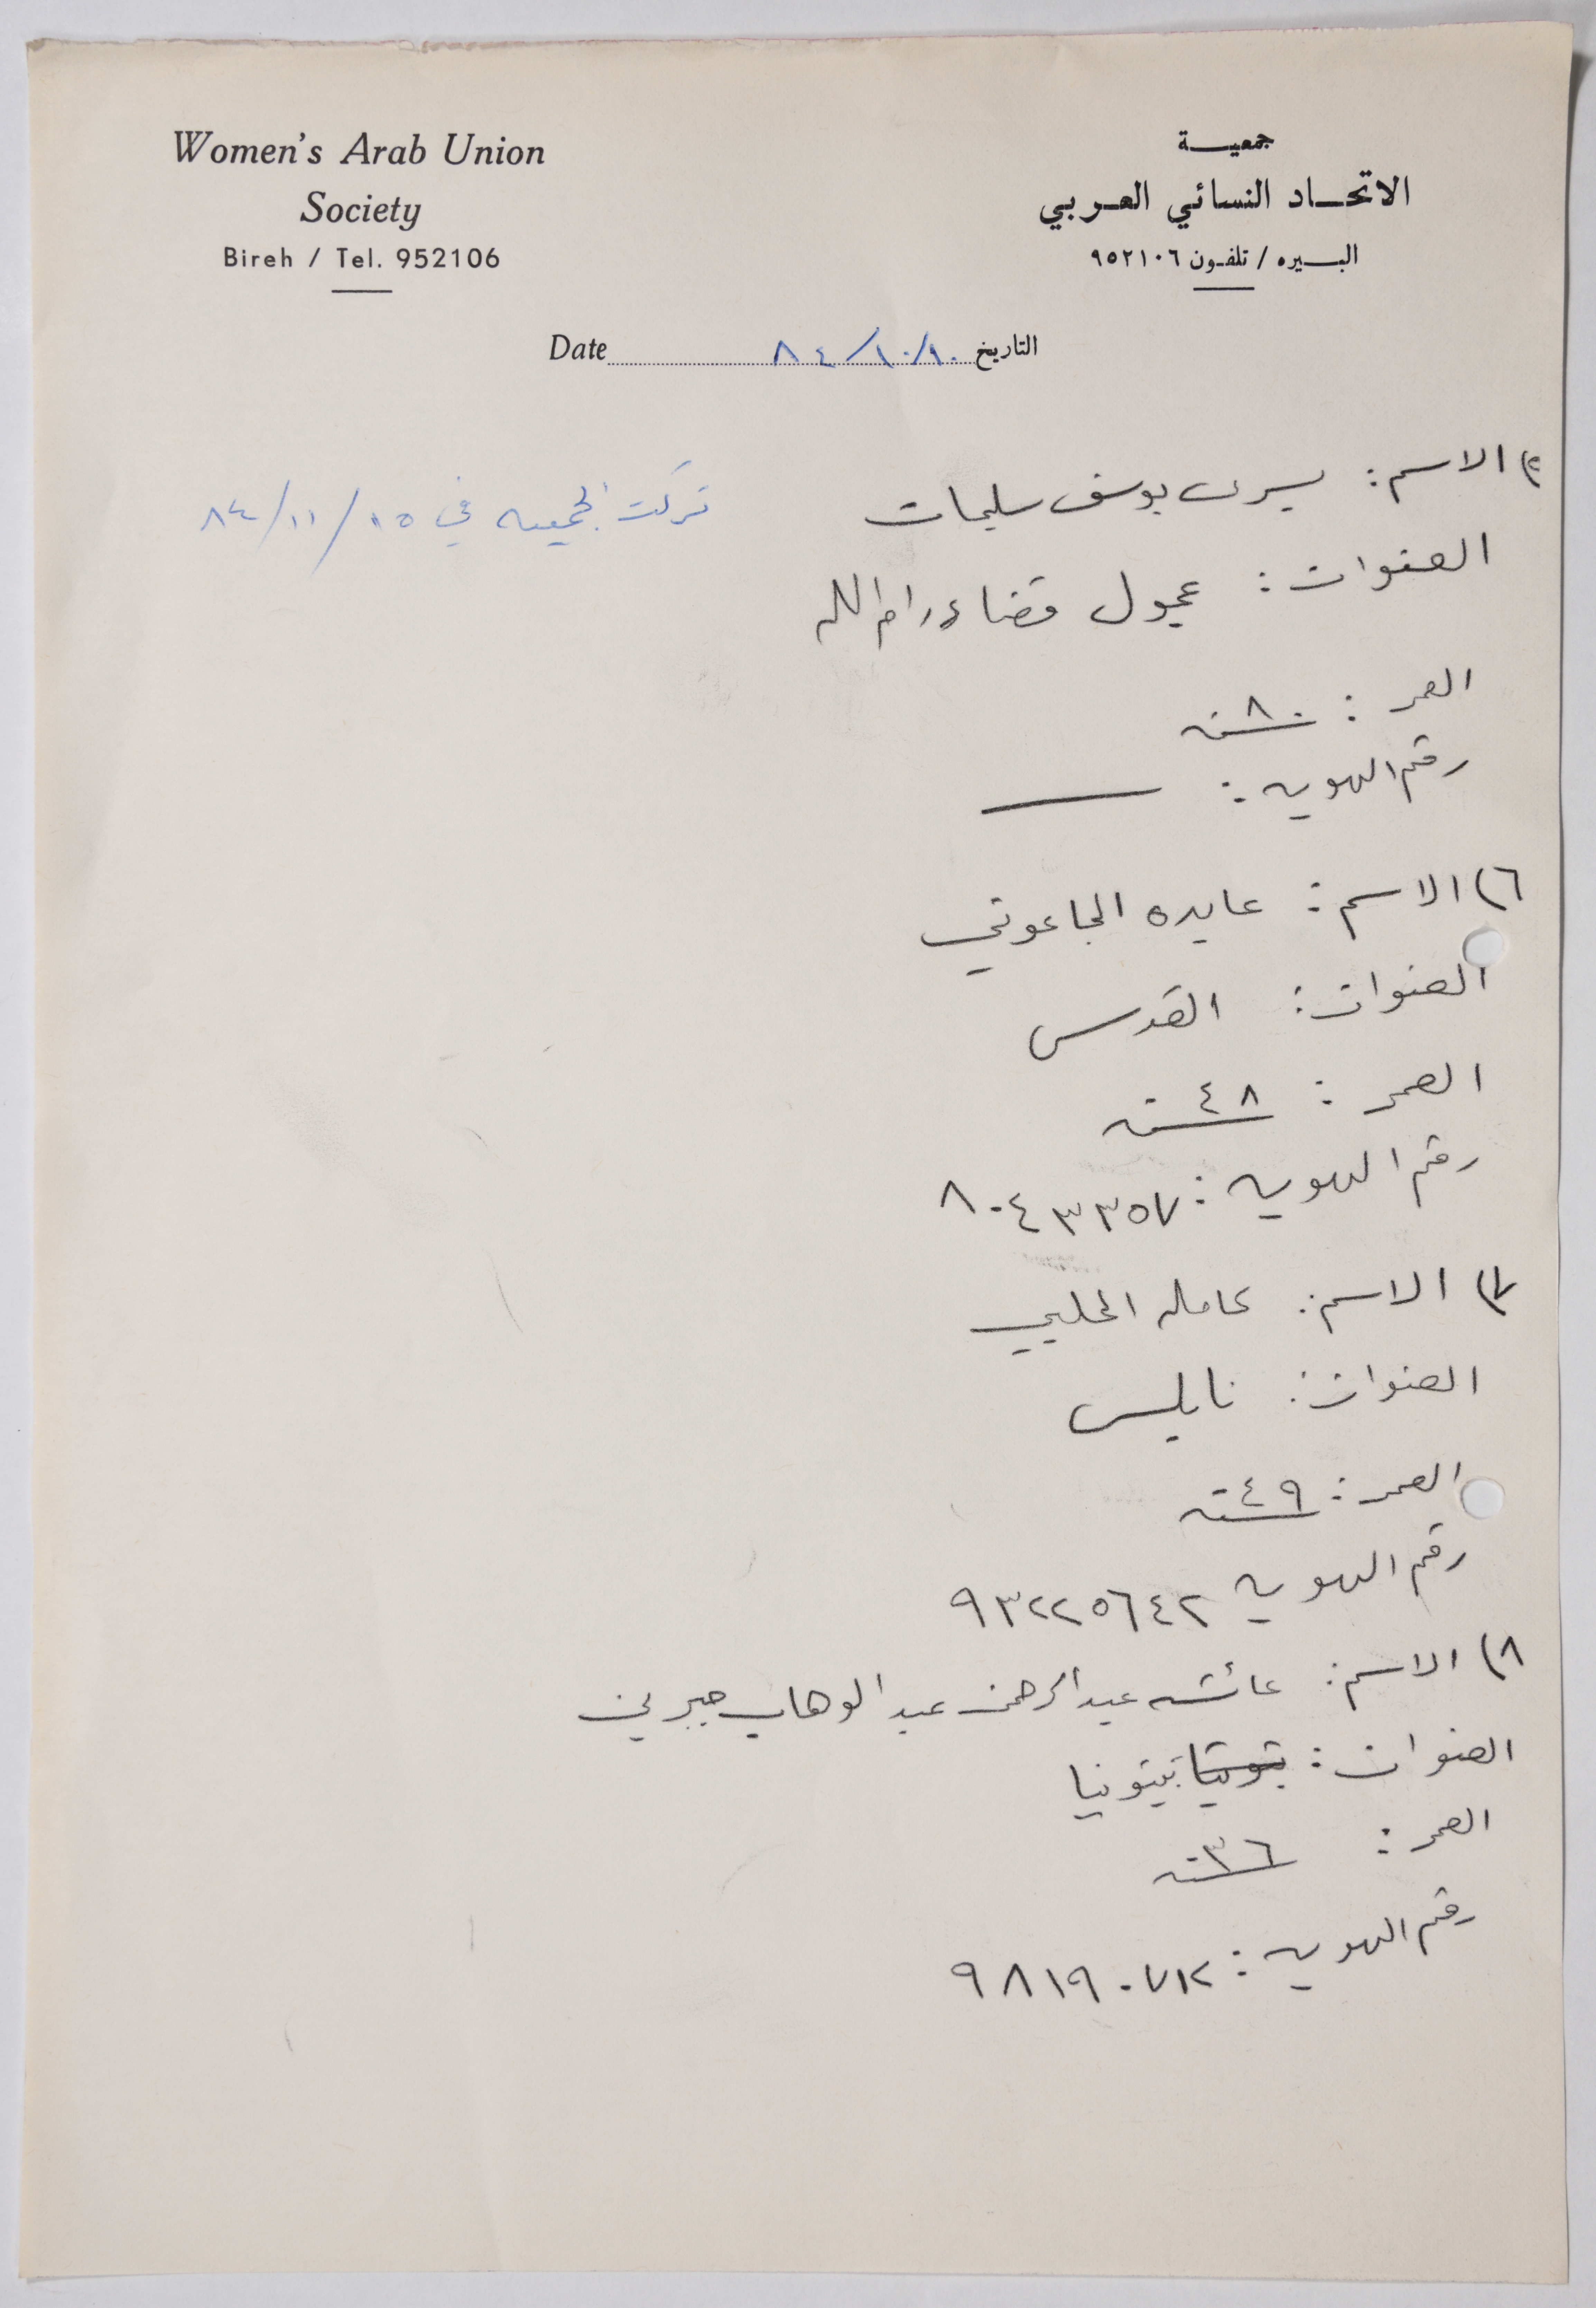 Women's Arab Union
Society
Bireh / Tel. 952106
جمعيـــة
الاتحـــاد النسـائي العـربي
البـــيره / تلفـون ٩٥٢١٠٦
Date ٨٤/١٠/١٠ التاريخ
٥) الاسم: يسرى يوسف سليمان
تركت الجمعيه في ١٥/١١/٨٤
العنوان: عجول قضاء رام الله
العمر: ٨٠ سنه
رقم الهويه: ——
٦) الاسم: عايده الجاعوني
العنوان: القدس
العمر: ٤٨ سنه
رقم الهويه: ٨٠٤٣٣٥٧
٧) الاسم: كامله الحلبي
العنوان: نابلس
العمر: ٤٩ سنه
رقم الهويه ٩٣٢٢٥٦٤٢
٨) الاسم: عائشه عبد الرحمن عبد الوهاب جبرين
العنوان: بيتونيا
العمر: ٣٦ سنه
رقم الهويه: ٩٨١٩٠٧١٢